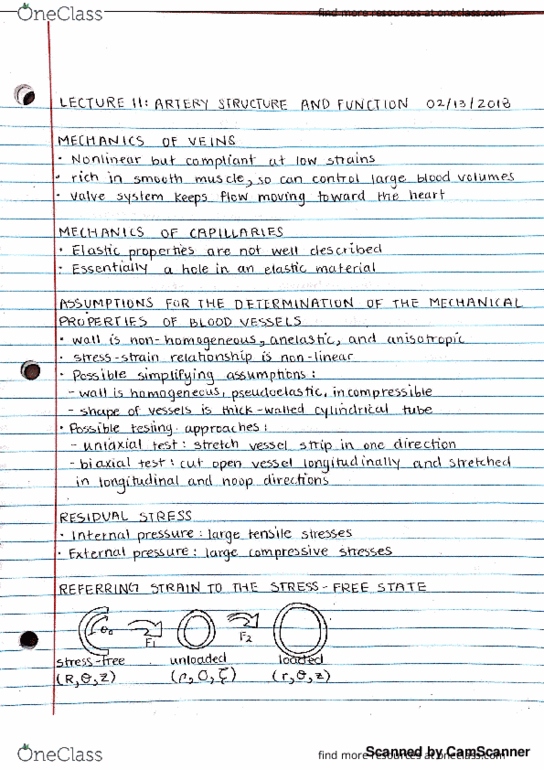 OneClass
find more resources at oneclass.com
LECTURE 11: ARTERY STRUCTURE AND FUNCTION 02/13/2018
MECHANICS OF VEINS
· Nonlinear but compliant at low strains
· rich in smooth muscle, so can control large blood volumes
· valve system keeps flow moving toward the heart
MECHANICS OF CAPILLARIES
· Elastic properties are not well described
· Essentially a hole in an elastic material
ASSUMPTIONS FOR THE DETERMINATION OF THE MECHANICAL
PROPERTIES OF BLOOD VESSELS
· wall is non-homogeneous, anelastic, and anisotropic
· stress-strain relationship is non-linear
· Possible simplifying assumptions:
- wall is homogeneous, pseudoelastic, incompressible
- shape of vessels is thick-walled cylindrical tube
· Possible testing approaches:
- uniaxial test: stretch vessel strip in one direction
- biaxial test: cut open vessel longitudinally and stretched
in longitudinal and hoop directions
RESIDUAL STRESS
· Internal pressure: large tensile stresses
· External pressure: large compressive stresses
REFERRING STRAIN TO THE STRESS-FREE STATE
F1 F2
stress-free unloaded loaded
(R, Θ, Z) (ρ, Θ, ζ) (r, θ, z)
OneClass
find more resources at oneclass.com
Scanned by CamScanner